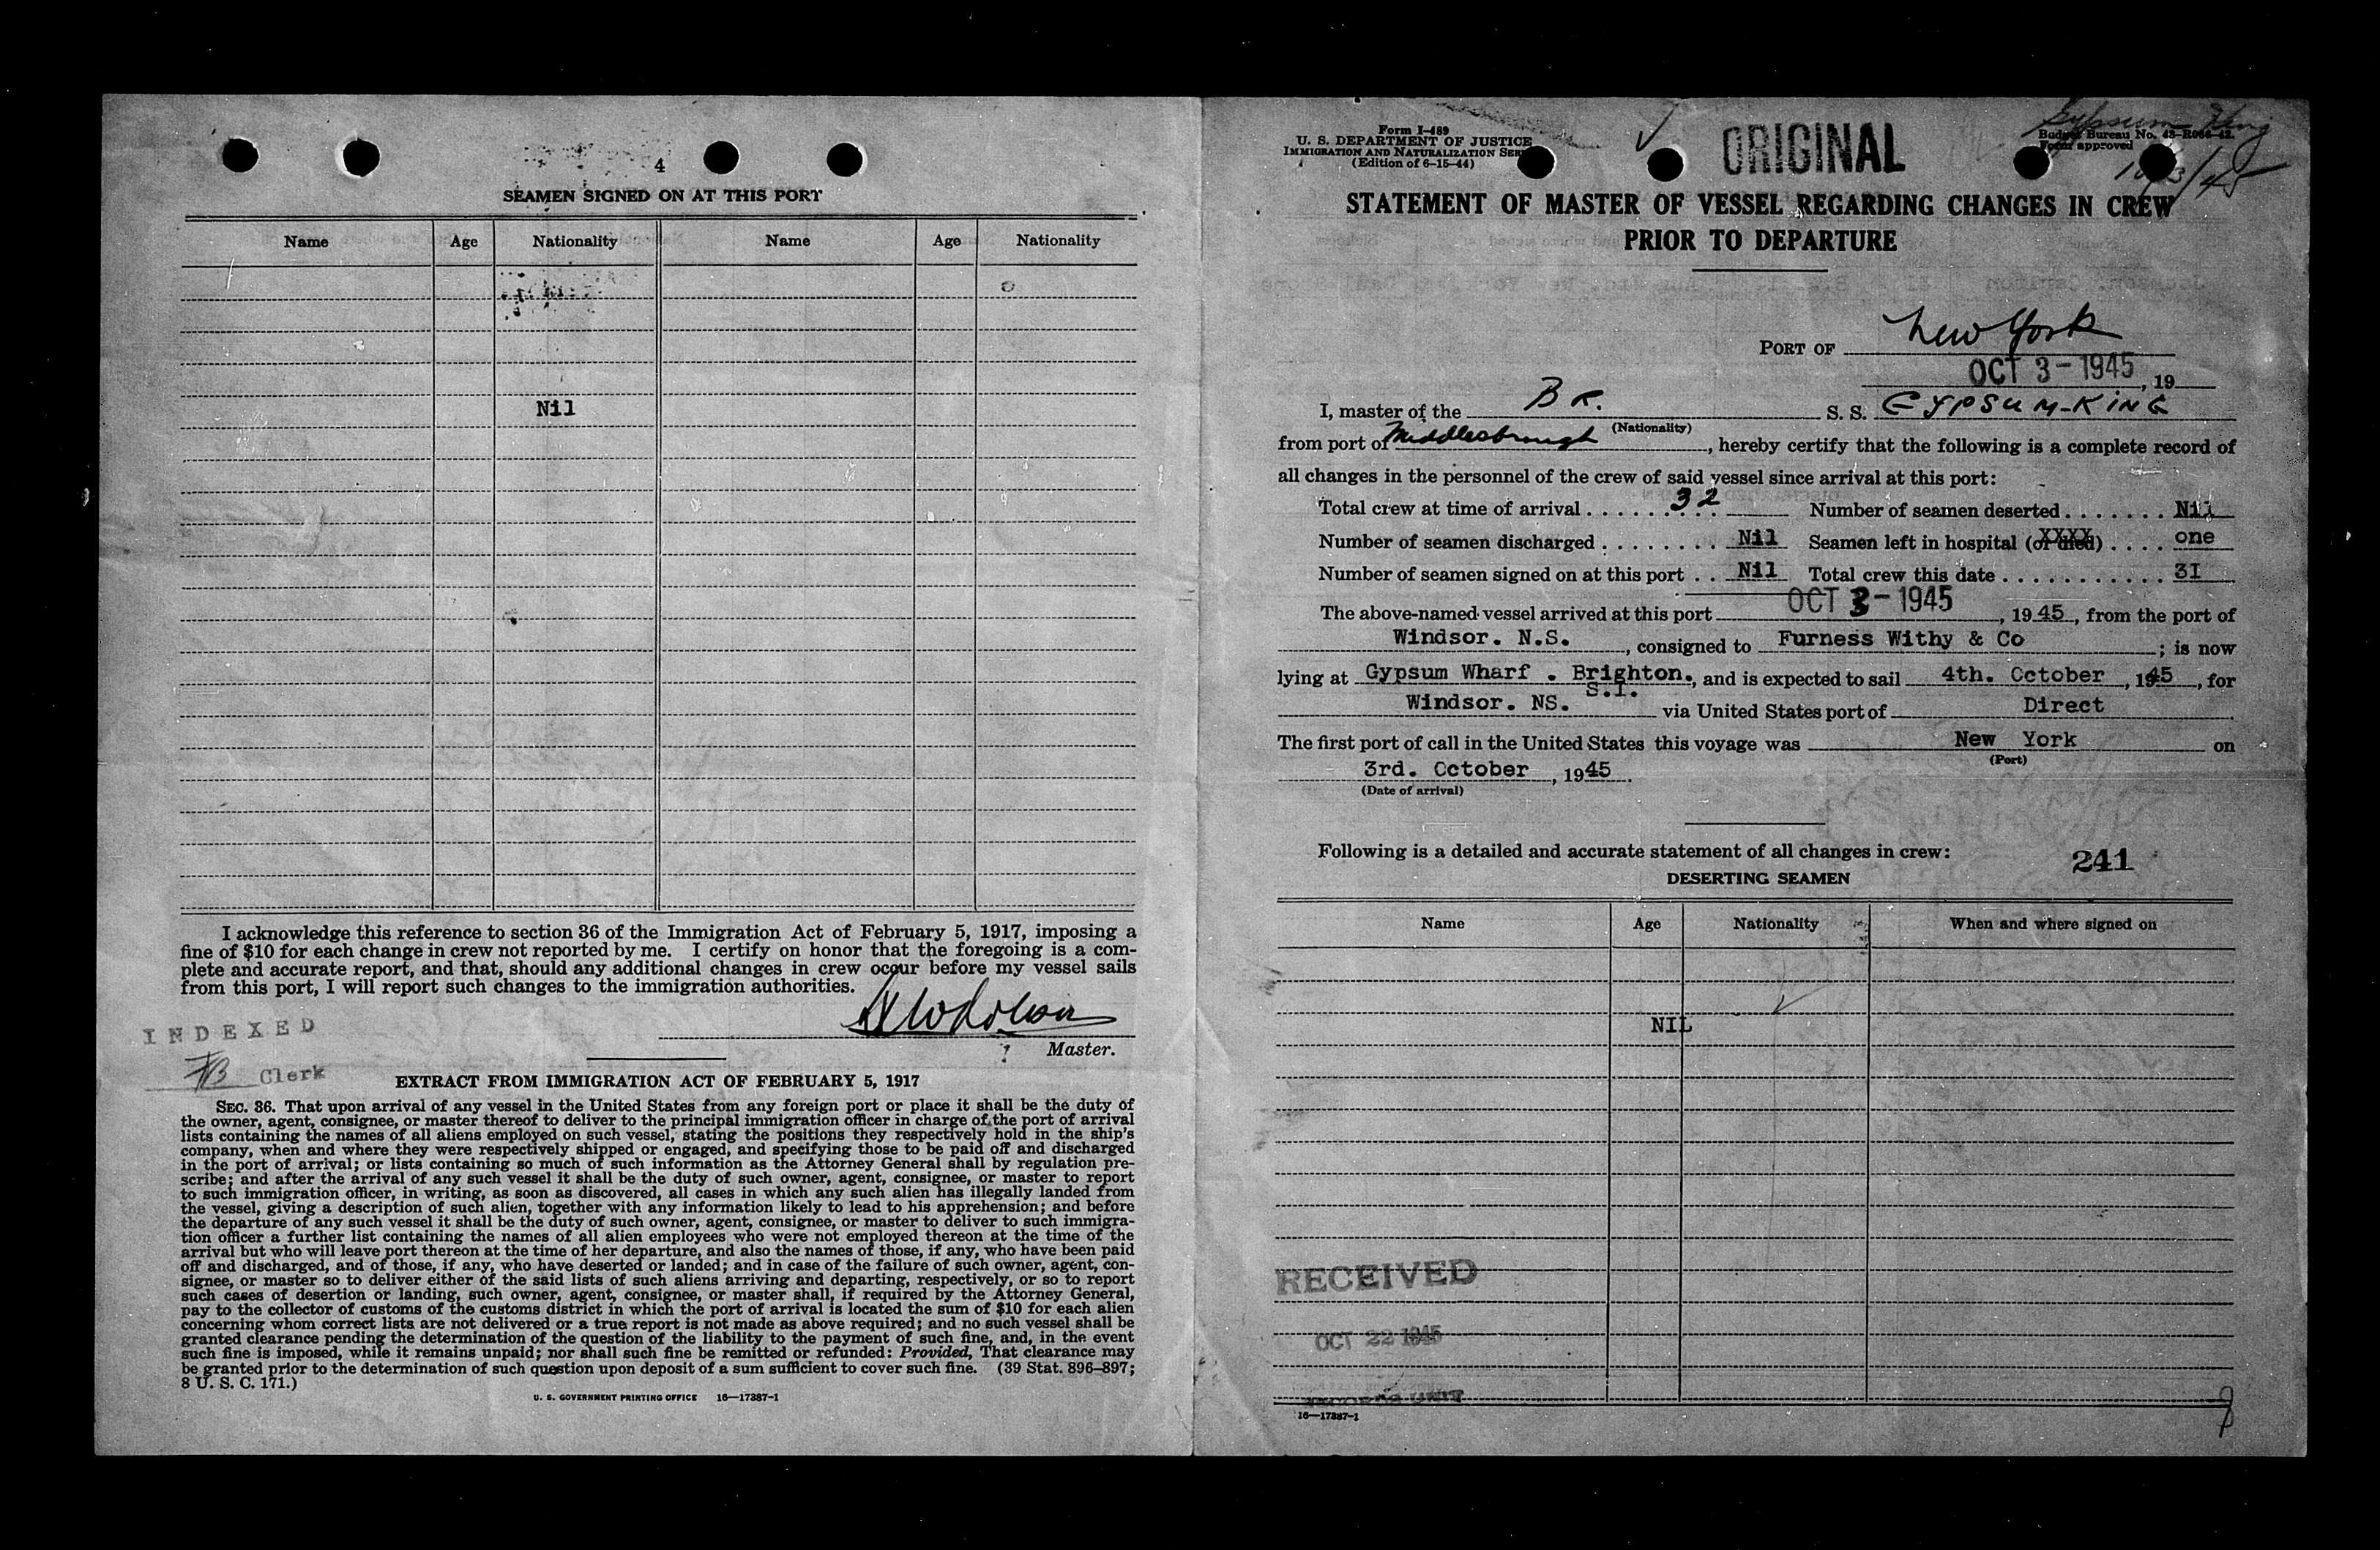 4
SEAMEN SIGNED ON AT THIS PORT
Name Age Nationality Name Age Nationality
Nil
I acknowledge this reference to section 36 of the Immigration Act of February 5, 1917, imposing a
fine of $10 for each change in crew not reported by me. I certify on honor that the foregoing is a com-
plete and accurate report, and that, should any additional changes in crew occur before my vessel sails
from this port, I will report such changes to the immigration authorities.
Master.
INDEXED
Clerk
EXTRACT FROM IMMIGRATION ACT OF FEBRUARY 5, 1917
SEC. 36. That upon arrival of any vessel in the United States from any foreign port or place it shall be the duty of
the owner, agent, consignee, or master thereof to deliver to the principal immigration officer in charge of the port of arrival
lists containing the names of all aliens employed on such vessel, stating the positions they respectively hold in the ship's
company, when and where they were respectively shipped or engaged, and specifying those to be paid off and discharged
in the port of arrival; or lists containing so much of such information as the Attorney General shall by regulation pre-
scribe; and after the arrival of any such vessel it shall be the duty of such owner, agent, consignee, or master to report
to such immigration officer, in writing, as soon as discovered, all cases in which any such alien has illegally landed from
the vessel, giving a description of such alien, together with any information likely to lead to his apprehension; and before
the departure of any such vessel it shall be the duty of such owner, agent, consignee, or master to deliver to such immigra-
tion officer a further list containing the names of all alien employees who were not employed thereon at the time of the
arrival but who will leave port thereon at the time of her departure, and also the names of those, if any, who have been paid
off and discharged, and of those, if any, who have deserted or landed; and in case of the failure of such owner, agent, con-
signee, or master so to deliver either of the said lists of such aliens arriving and departing, respectively, or so to report
such cases of desertion or landing, such owner, agent, consignee, or master shall, if required by the Attorney General,
pay to the collector of customs of the customs district in which the port of arrival is located the sum of $10 for each alien
concerning whom correct lists are not delivered or a true report is not made as above required; and no such vessel shall be
granted clearance pending the determination of the question of the liability to the payment of such fine, and, in the event
such fine is imposed, while it remains unpaid; nor shall such fine be remitted or refunded: Provided, That clearance may
be granted prior to the determination of such question upon deposit of a sum sufficient to cover such fine. (39 Stat. 896–897;
8 U. S. C. 171.)
U. S. GOVERNMENT PRINTING OFFICE 16—17387-1
Form I-489
U. S. DEPARTMENT OF JUSTICE
IMMIGRATION AND NATURALIZATION
(Edition of 6-15-44)
ORIGINAL
Gypsum King
Budget Bureau No. 43-R066-42.
Form approved
10/3/45
STATEMENT OF MASTER OF VESSEL REGARDING CHANGES IN CREW
PRIOR TO DEPARTURE
PORT OF New York
OCT 3 - 1945, 19
I, master of the Br. S. S. GYPSUM-KING
(Nationality)
from port of Middlesbrough, hereby certify that the following is a complete record of
all changes in the personnel of the crew of said vessel since arrival at this port:
Total crew at time of arrival . . . . . . . . 32 Number of seamen deserted . . . . . . . Nil
Number of seamen discharged . . . . . . . . Nil Seamen left in hospital (or died) . . . . one
Number of seamen signed on at this port . . Nil Total crew this date . . . . . . . . . . . 3I
The above-named vessel arrived at this port OCT 3 - 1945, 1945, from the port of
Windsor. N.S., consigned to Furness Withy & Co; is now
lying at Gypsum Wharf . Brighton. S.I., and is expected to sail 4th. October, 1945, for
Windsor. NS. via United States port of Direct
The first port of call in the United States this voyage was New York on
(Port)
3rd. October, 1945.
(Date of arrival)
Following is a detailed and accurate statement of all changes in crew:
241
DESERTING SEAMEN
Name Age Nationality When and where signed on
NIL
RECEIVED
OCT 22 1945
UNIT
16—17387-1